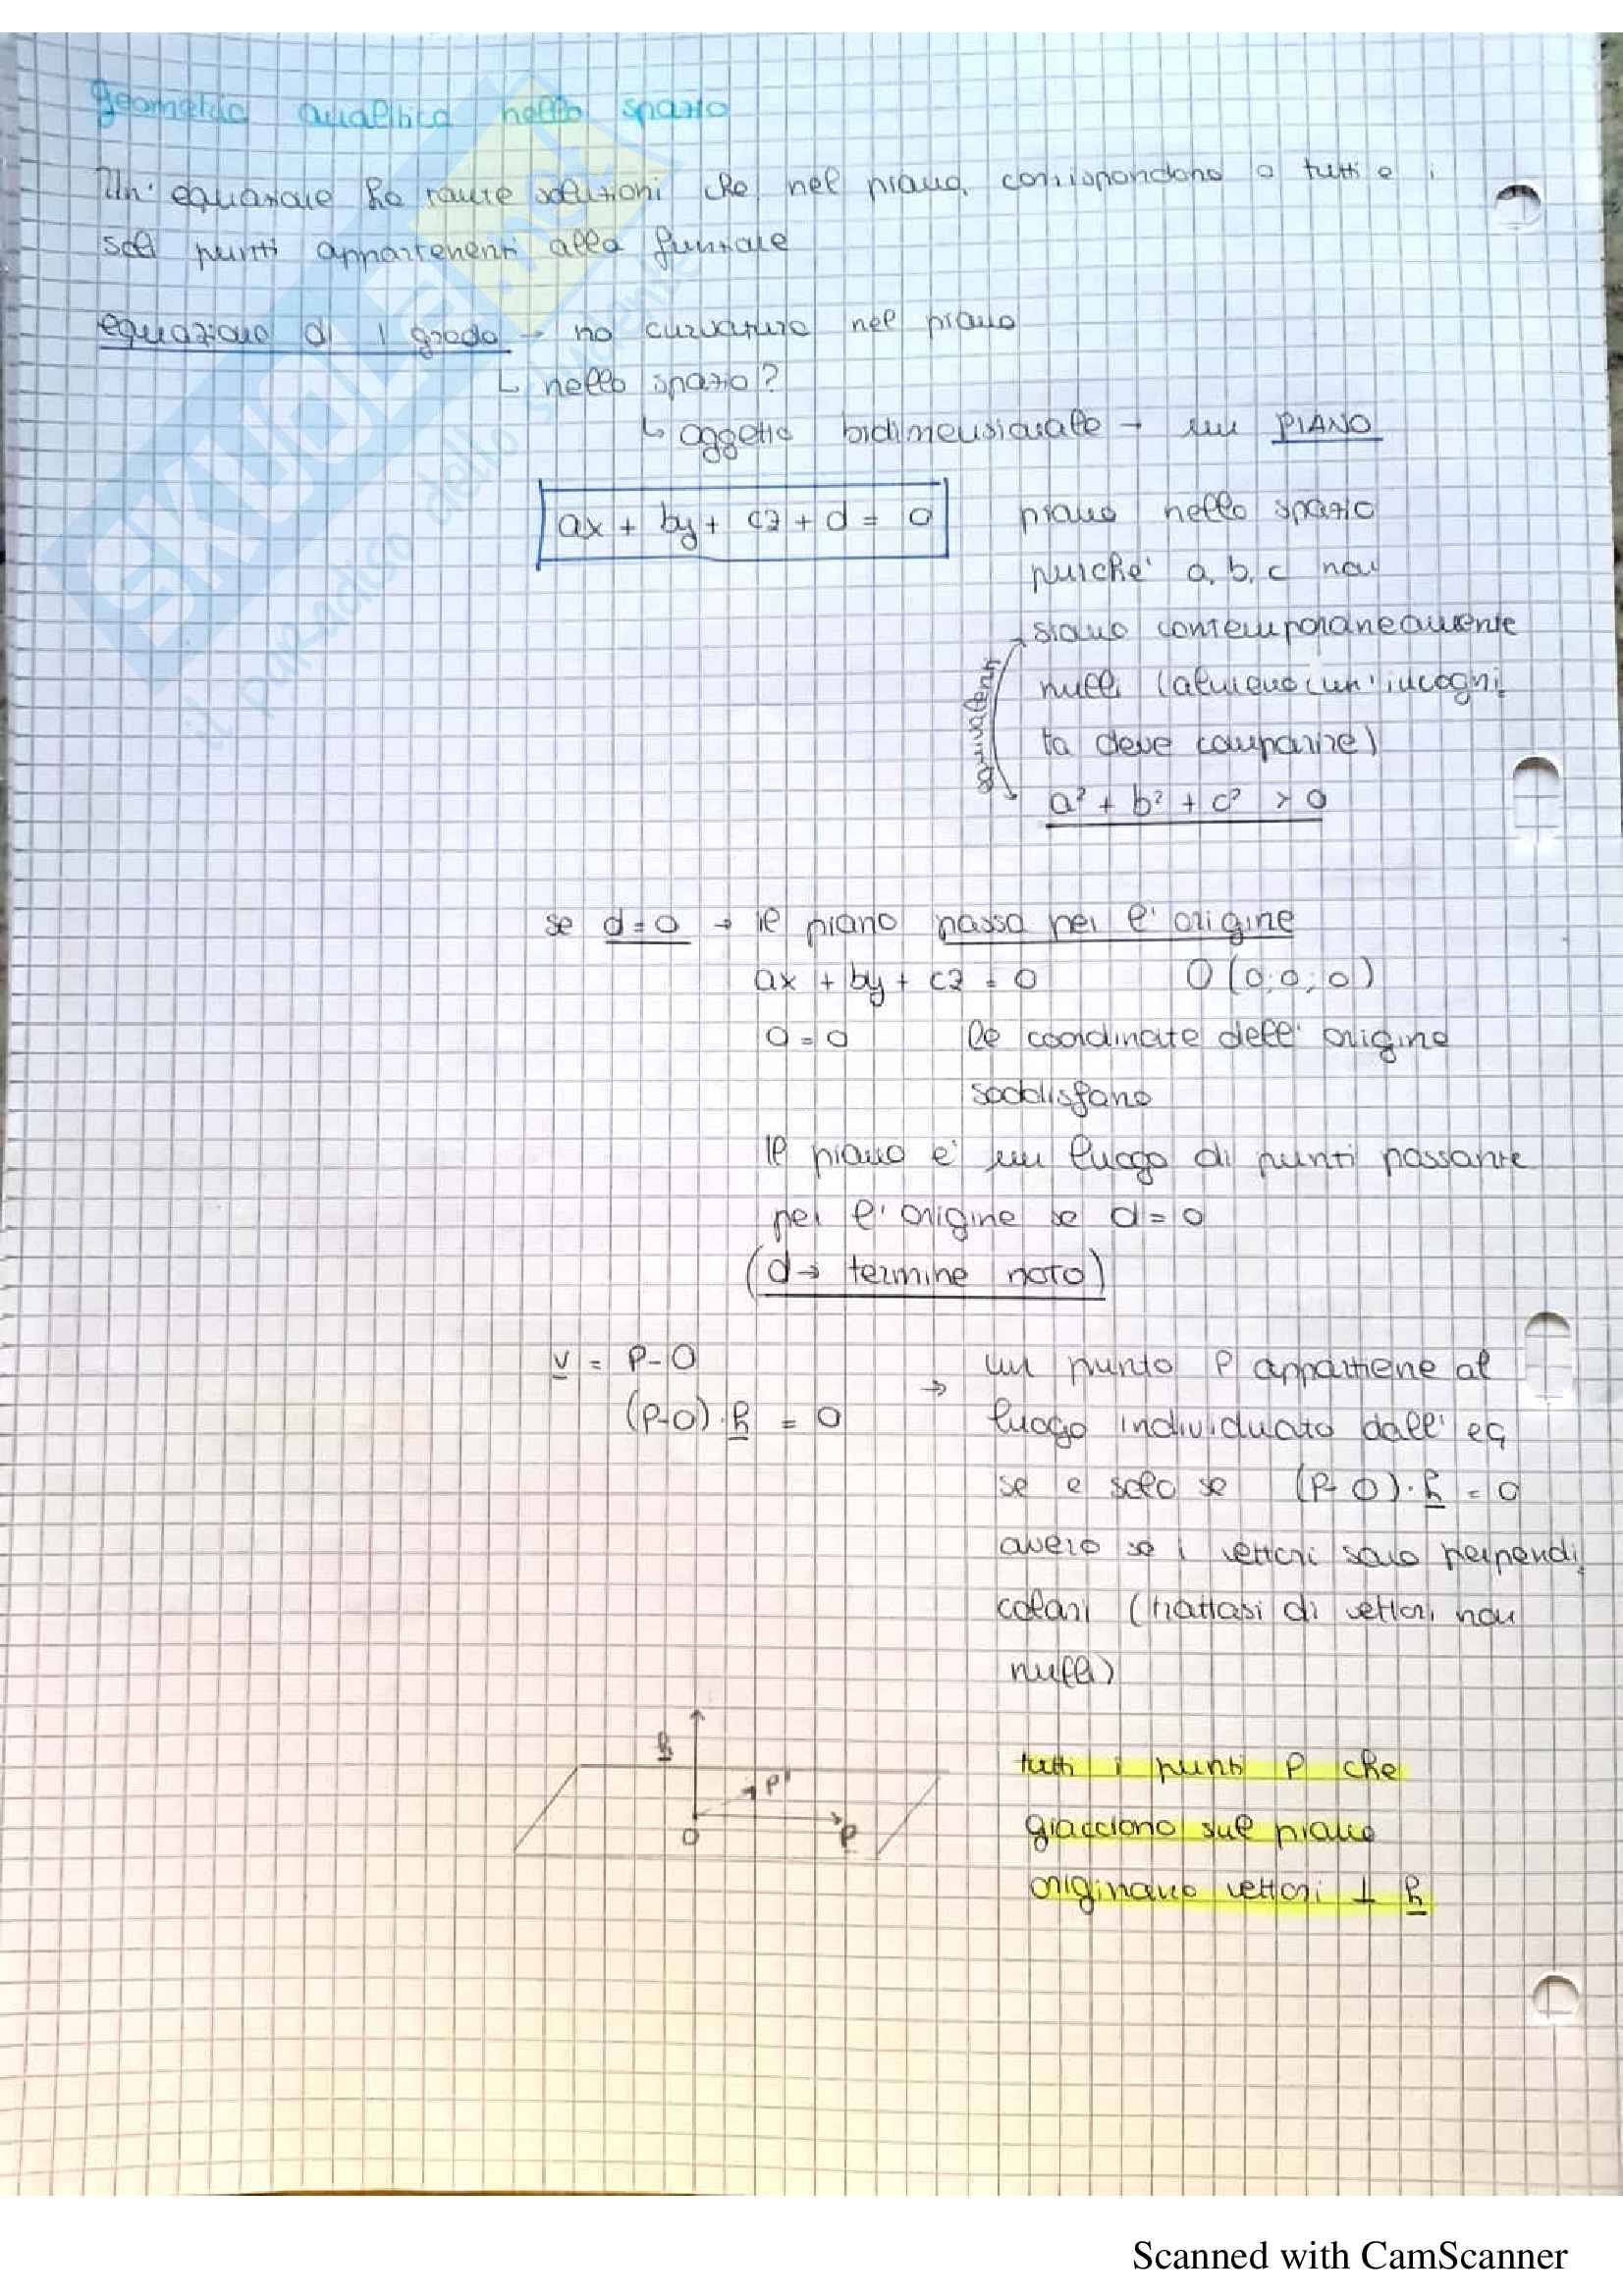 Geometria analitica nello spazio
Un'equazione ha tante soluzioni che nel piano corrispondono a tutti e i
soli punti appartenenti alla funzione
equazione di 1 grado → no curvatura nel piano
↳ nello spazio?
↳ oggetto bidimensionale → un PIANO
ax + by + cz + d = 0
piano nello spazio
purché a, b, c non
siano contemporaneamente
nulli (almeno un'incogni
ta deve comparire)
equivalenti
a² + b² + c² > 0
se d = 0 → il piano passa per l'origine
ax + by + cz = 0 O (0;0;0)
0 = 0 le coordinate dell'origine
soddisfano
Il piano è un luogo di punti passante
per l'origine se d = 0
(d → termine noto)
v = P-O
(P-O)·h = 0
→ un punto P appartiene al
luogo individuato dall'eq
se e solo se (P-O)·h = 0
ovvero se i vettori sono perpendi
colari (trattasi di vettori non
nulli)
h
P'
O
P
tutti i punti P che
giacciono sul piano
originano vettori ⊥ h
SKUOLA.net
il paradiso dello studente
Scanned with CamScanner